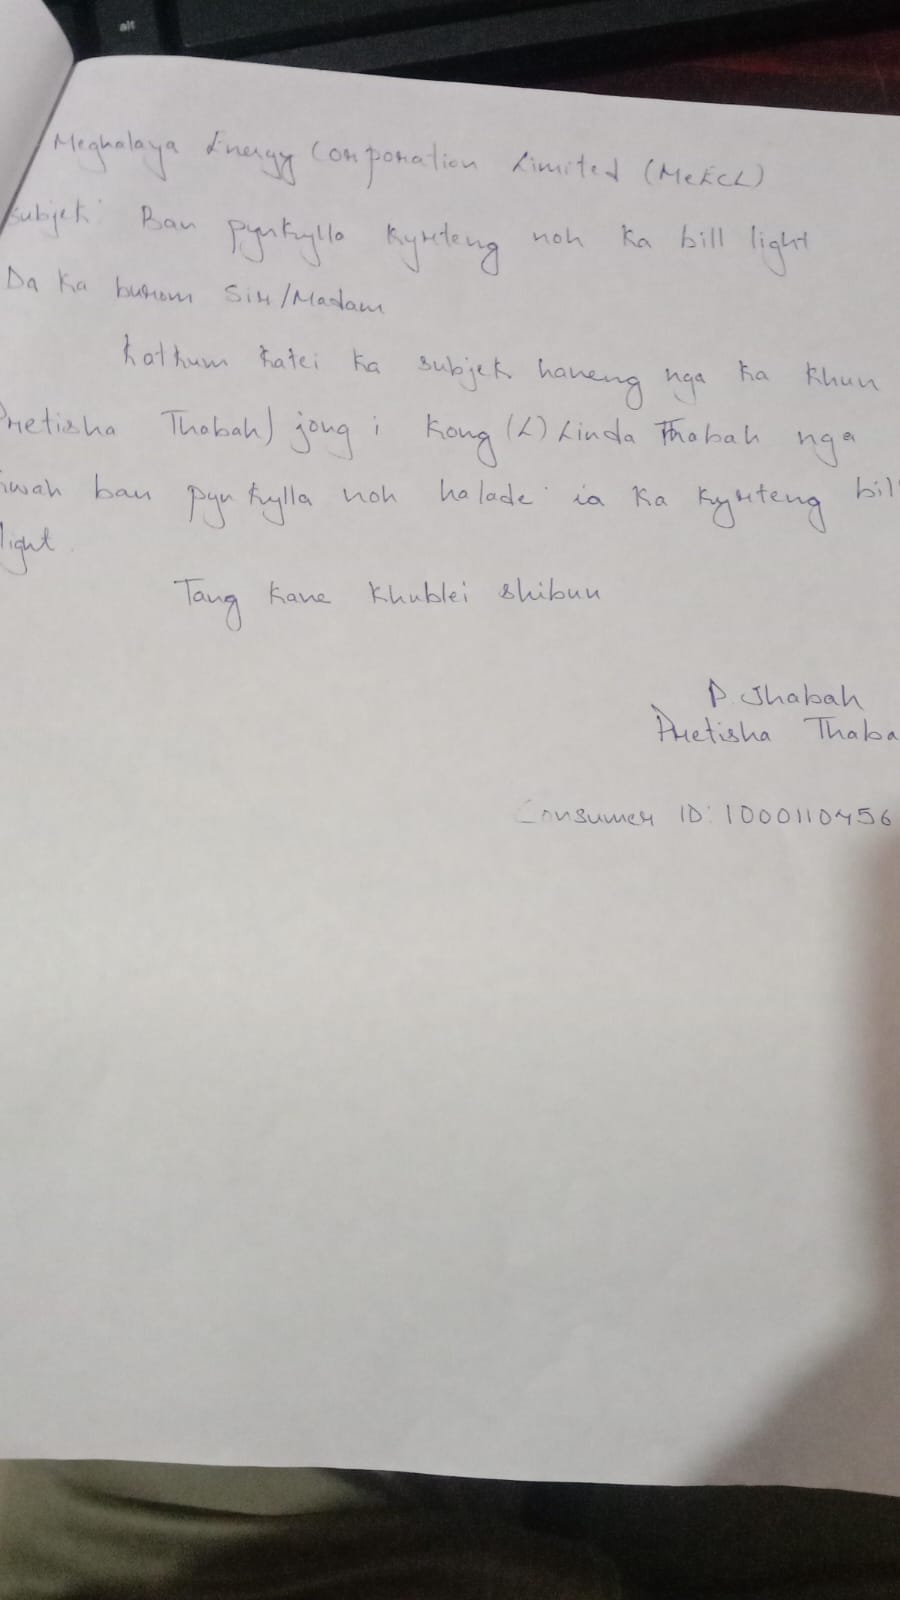 alt
Meghalaya Energy Corporation Limited (MeECL)
Subjek: Ban pynkylla kyrteng noh ka bill light
Da ka burom Sir/Madam
Kathum katei ka subjek haneng nga ka khun
Pretisha Thabah) jong i Kong (L) Linda Thabah nga
kwah ban pyn kylla noh halade ia ka kyrteng bill
light.
Tang kane Khublei shibun
P. Thabah
Pretisha Thaba
Consumer ID: 1000110456